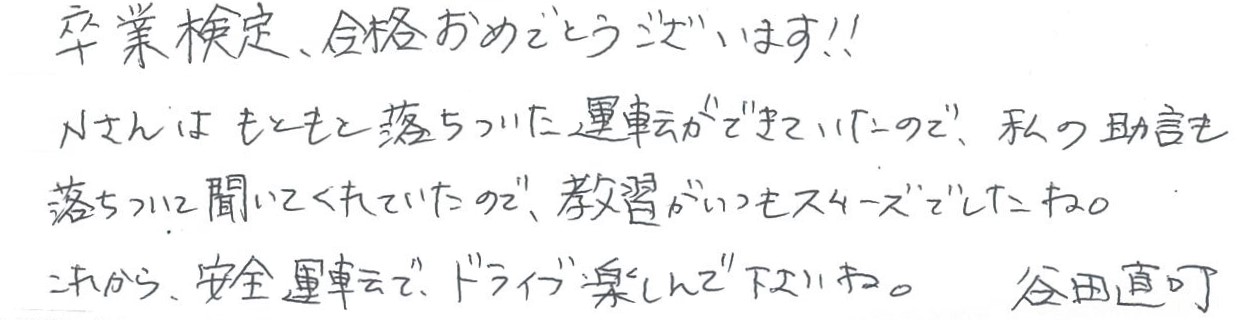 卒業検定、合格おめでとうございます!!
Nさんはもともと落ちついた運転ができていたので、私の助言も
落ちついて聞いてくれていたので、教習がいつもスムーズでしたね。
これから、安全運転で、ドライブ楽しんで下さいね。 谷田直